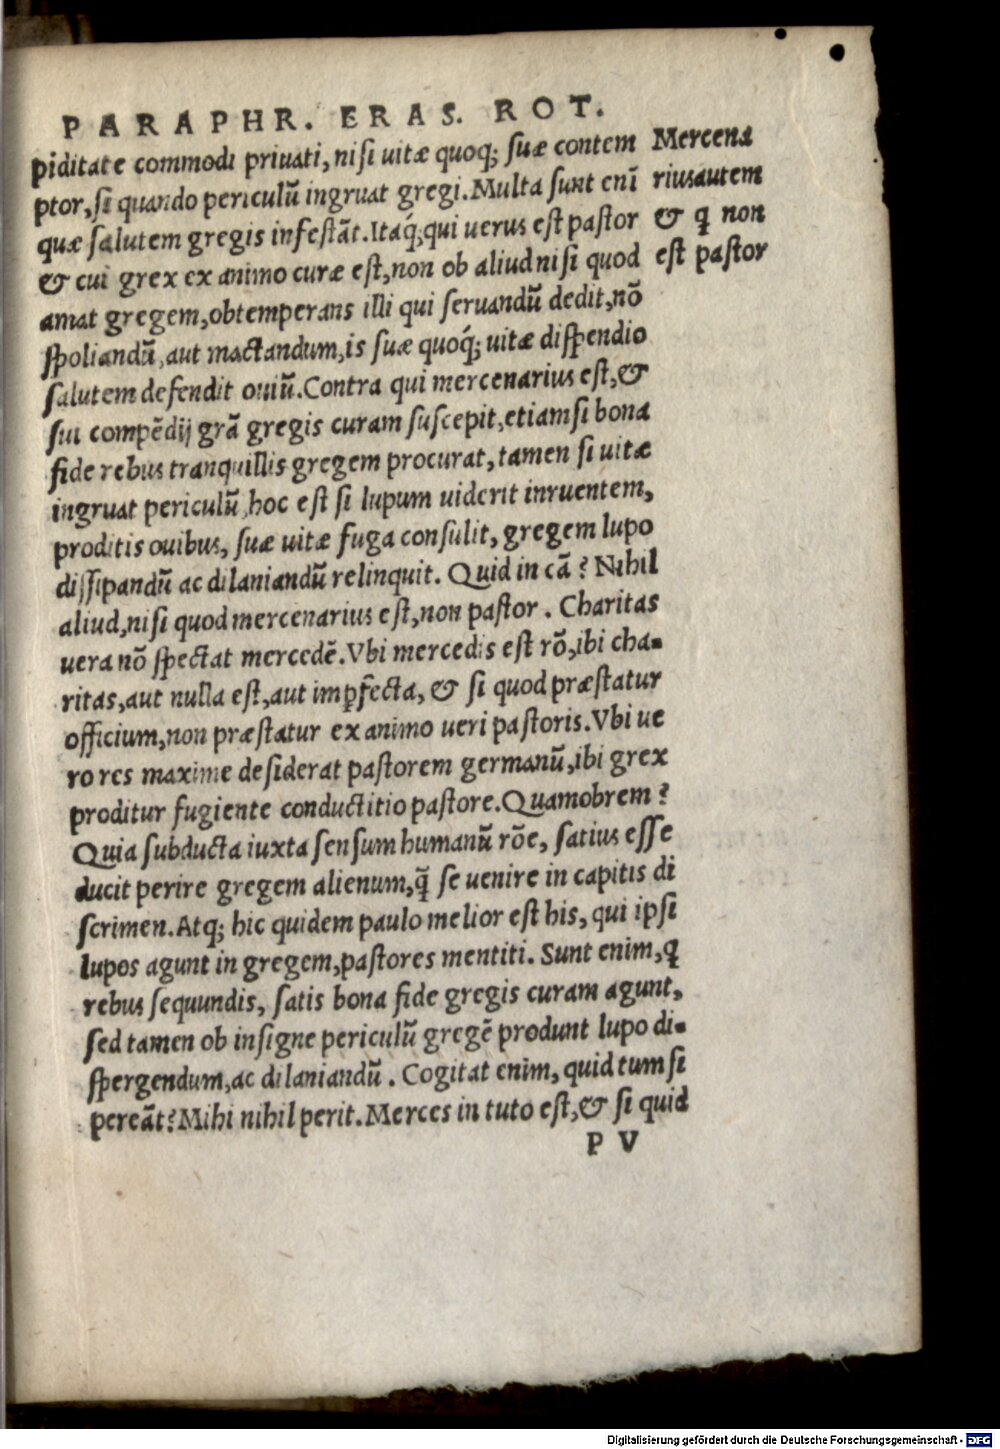 PARAPHR. ERAS. ROT.
piditate commodi priuati, nisi uitæ quoq; suæ contem
ptor, si quando periculū ingruat gregi. Multa sunt enī
quæ salutem gregis infestāt. Itaq́;, qui uerus est pastor
& cui grex ex animo curæ est, non ob aliud nisi quod
amat gregem, obtemperans illi qui seruandū dedit, nō
spoliandū, aut mactandum, is suæ quoq́; uitæ dispendio
salutem defendit ouiū. Contra qui mercenarius est, &
sui compēdij grā gregis curam suscepit, etiamsi bona
fide rebus tranquillis gregem procurat, tamen si uitæ
ingruat periculū, hoc est si lupum uiderit inruentem,
proditis ouibus, suæ uitæ fuga consulit, gregem lupo
dissipandū ac dilaniandū relinquit. Quid in cā? Nihil
aliud, nisi quod mercenarius est, non pastor. Charitas
uera nō spectat mercedē. Vbi mercedis est rō, ibi cha-
ritas, aut nulla est, aut imꝑfecta, & si quod præstatur
officium, non præstatur ex animo ueri pastoris. Vbi ue
ro res maxime desiderat pastorem germanū, ibi grex
proditur fugiente conductitio pastore. Quamobrem?
Quia subducta iuxta sensum humanū rōe, satius esse
ducit perire gregem alienum, q̄ se uenire in capitis di
scrimen. Atq; hic quidem paulo melior est his, qui ipsi
lupos agunt in gregem, pastores mentiti. Sunt enim, q
rebus sequundis, satis bona fide gregis curam agunt,
sed tamen ob insigne periculū gregē produnt lupo di-
spergendum, ac dilaniandū. Cogitat enim, quid tum si
pereāt? Mihi nihil perit. Merces in tuto est, & si quid
P V
Mercena
rius autem
& q non
est pastor
Digitalisierung gefördert durch die Deutsche Forschungsgemeinschaft - DFG